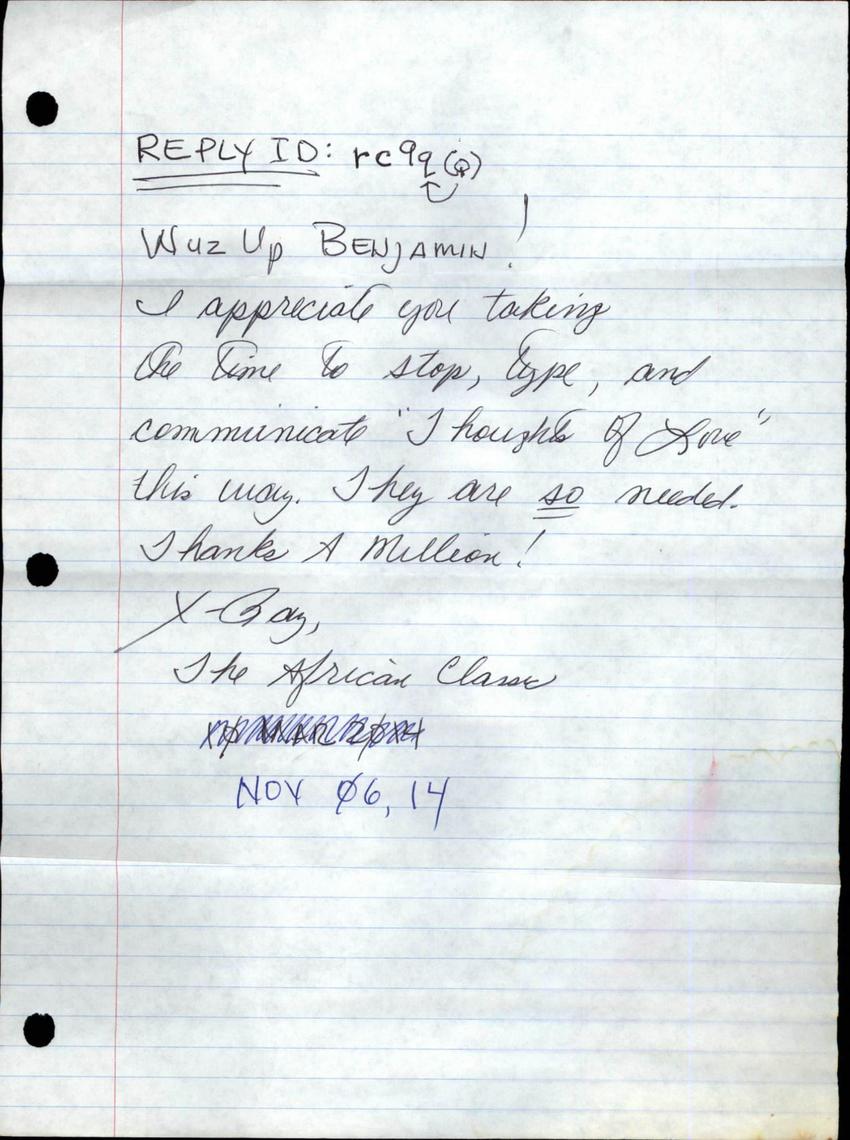 REPLY ID: rc9q (Q)
Wuz Up BENJAMIN!
I appreciate you taking
the time to stop, type, and
communicate "Thoughts Of Love"
this way. They are so needed.
Thanks A Million!
X-Ray,
The African Classic
NOV 06, 14